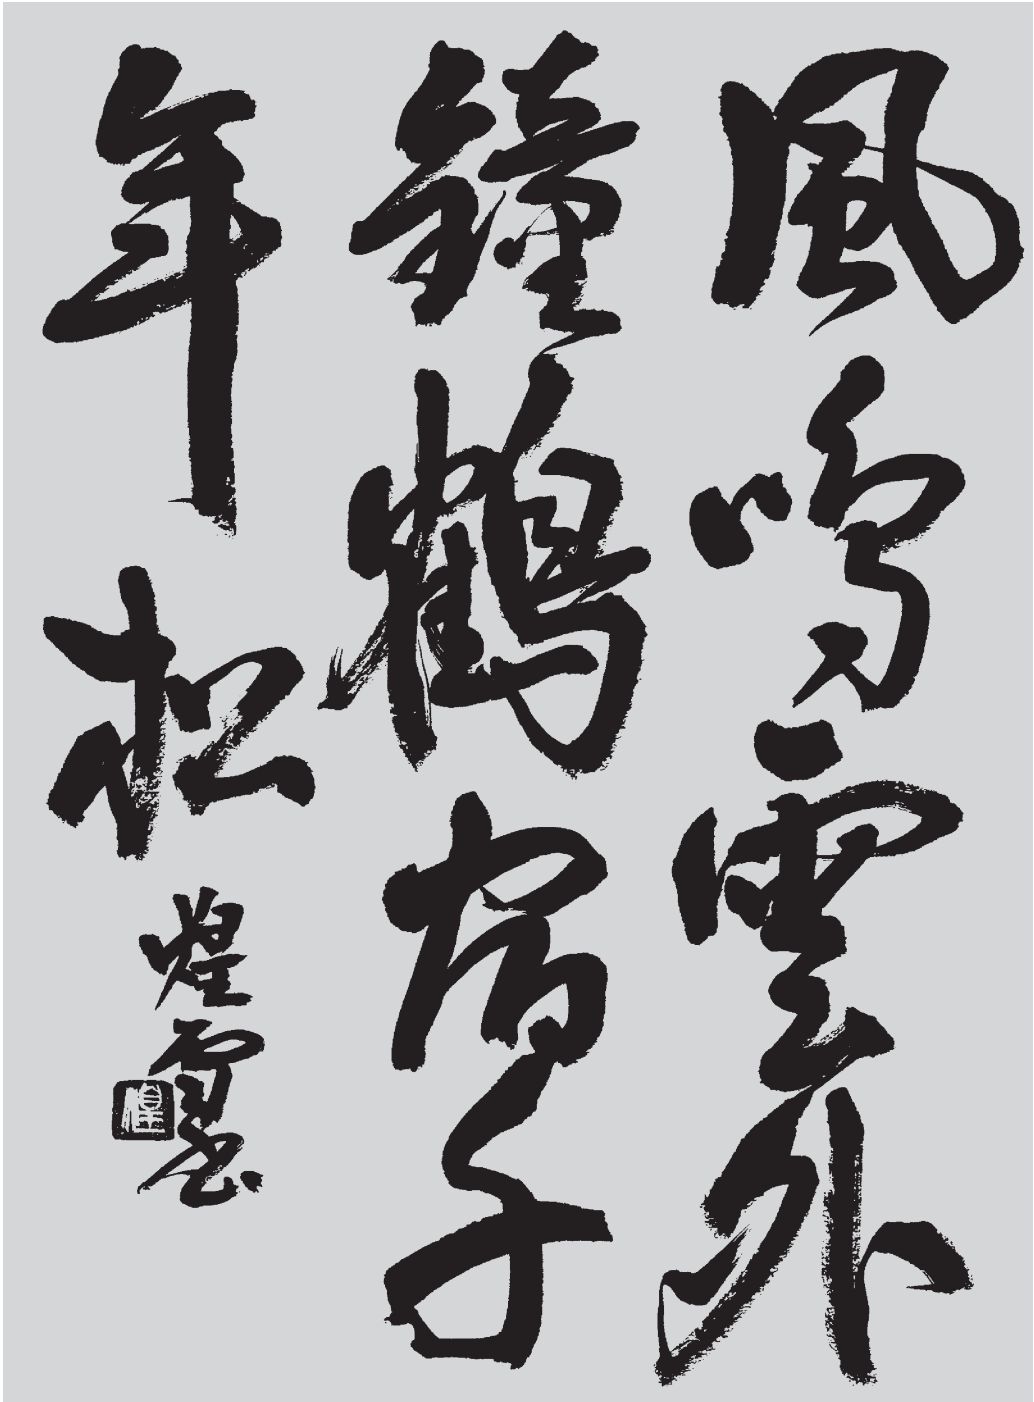 風鳴雲外
鐘鶴宿千
年松
煌雪書
煌